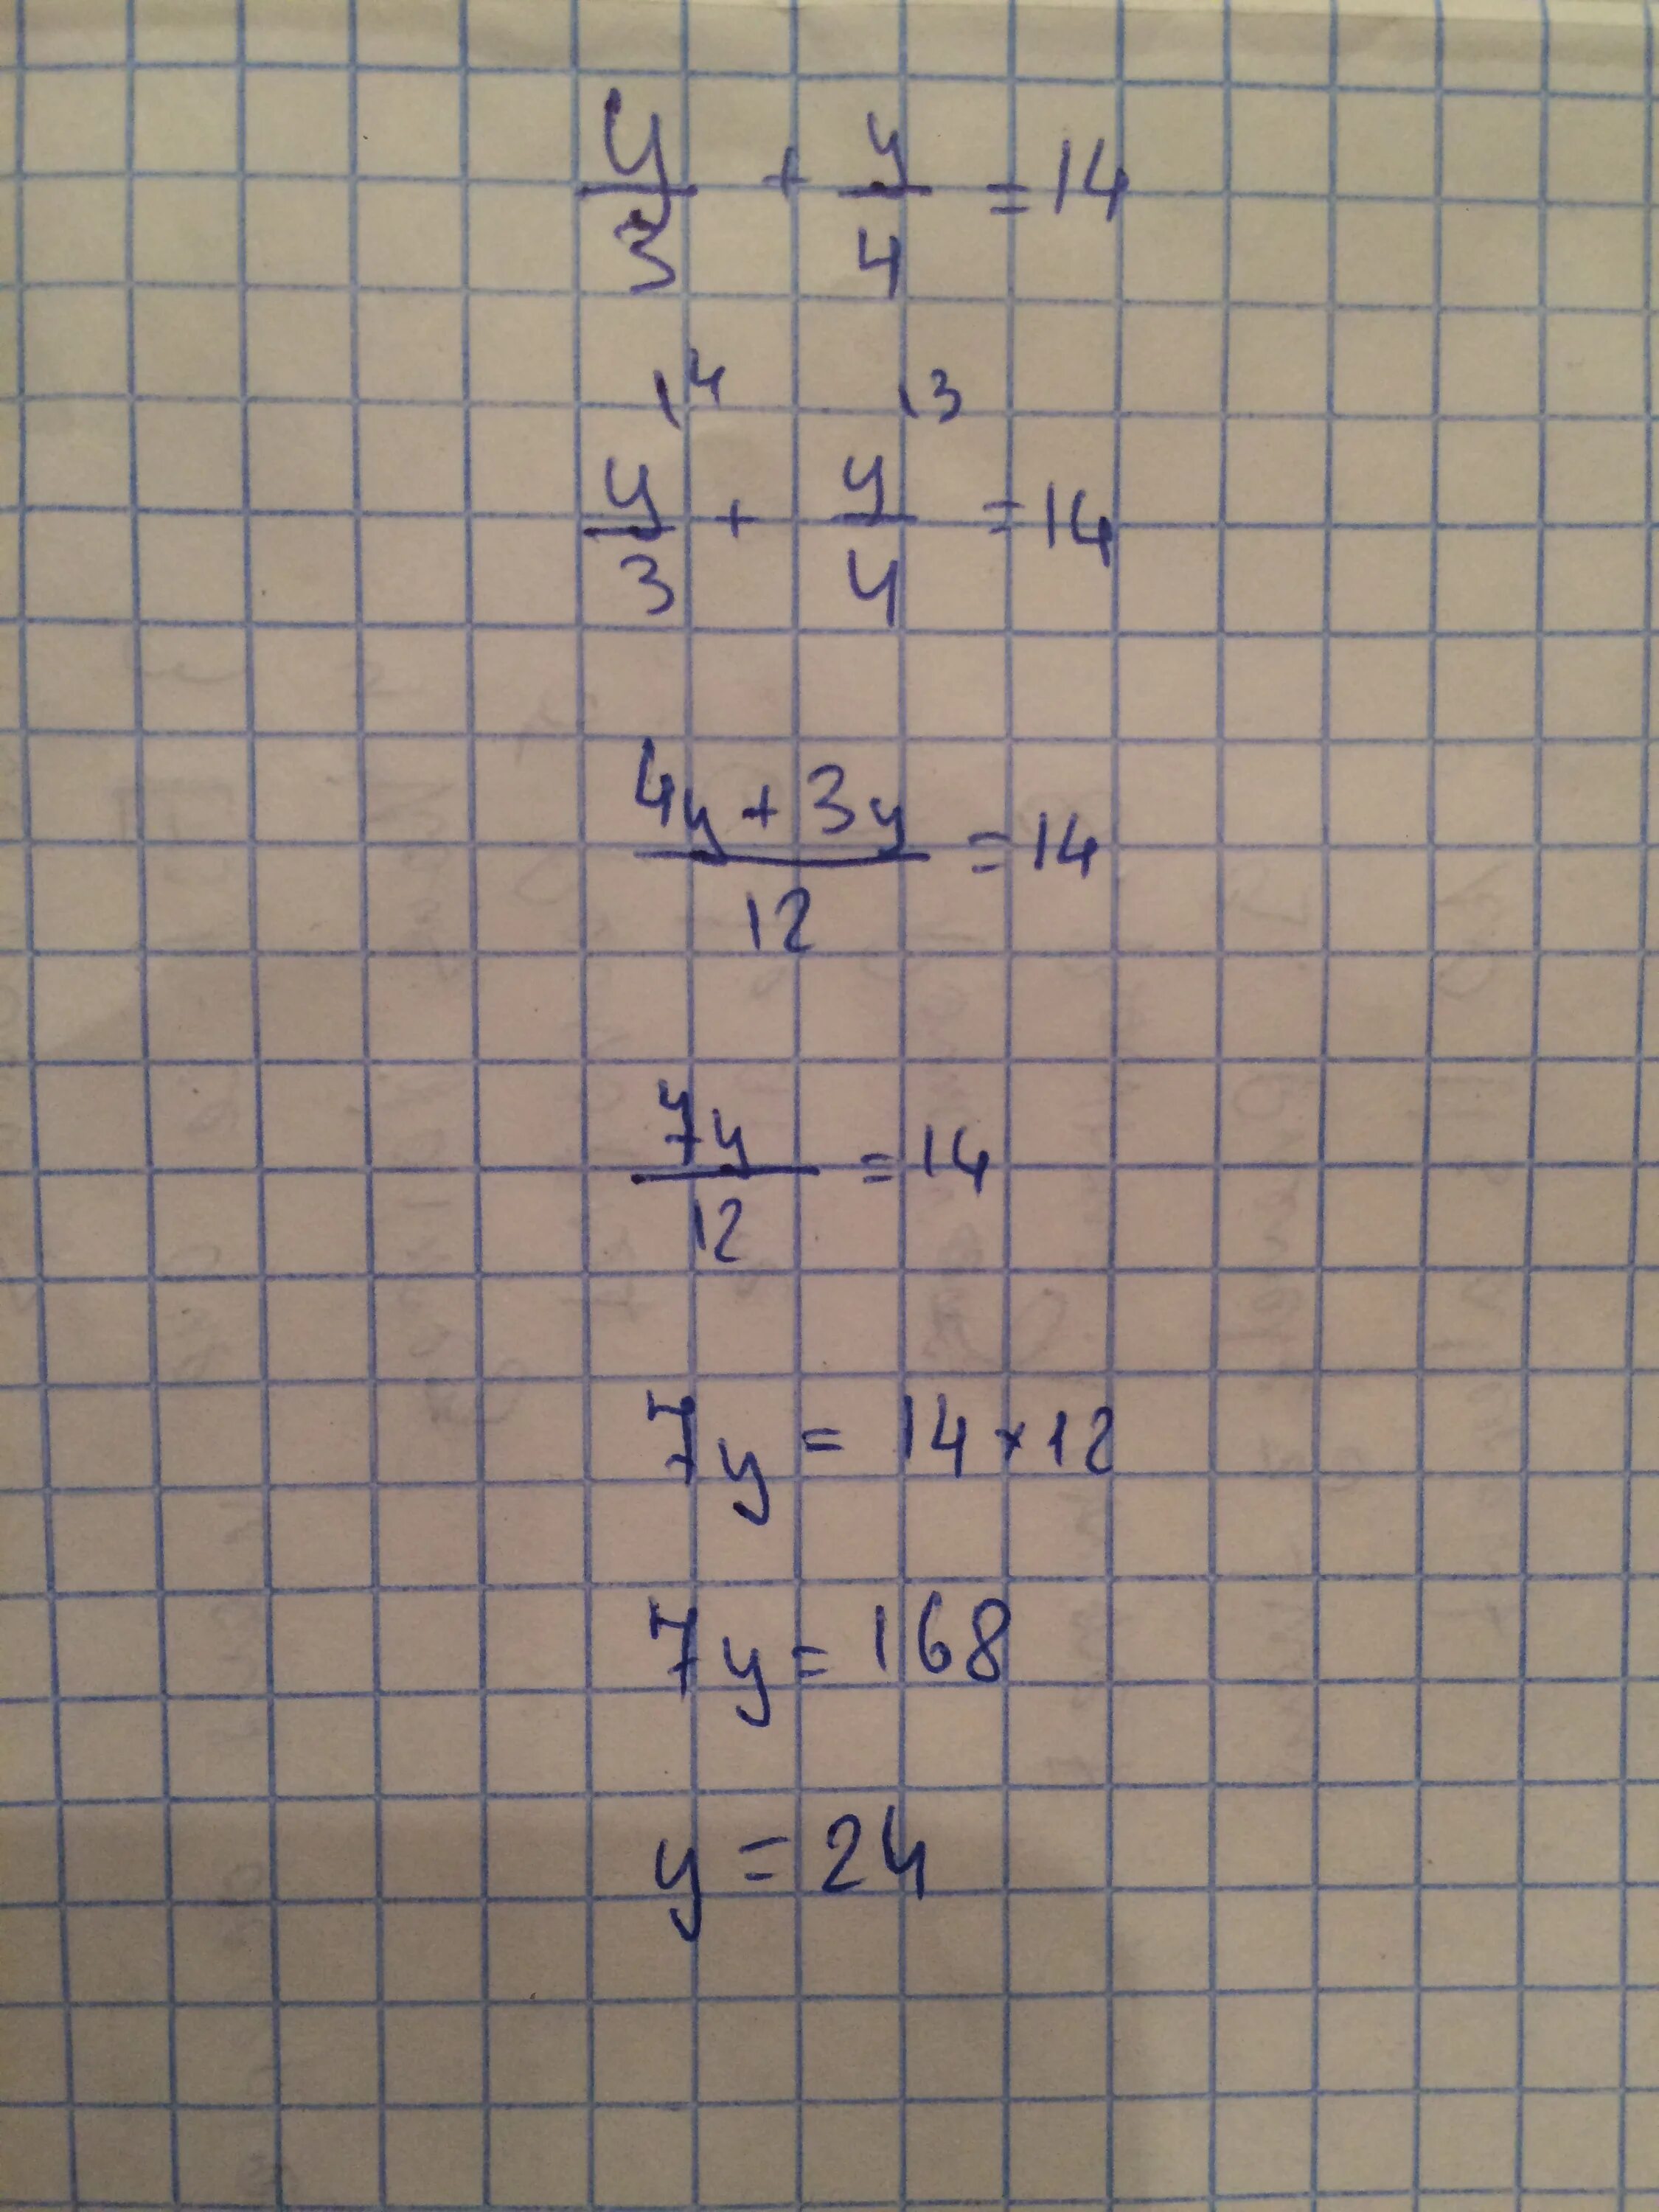 y/3 + y/4 = 14
\4 \3
y/3 + y/4 = 14
(4y + 3y)/12 = 14
7y/12 = 14
7y = 14 × 12
7y = 168
y = 24